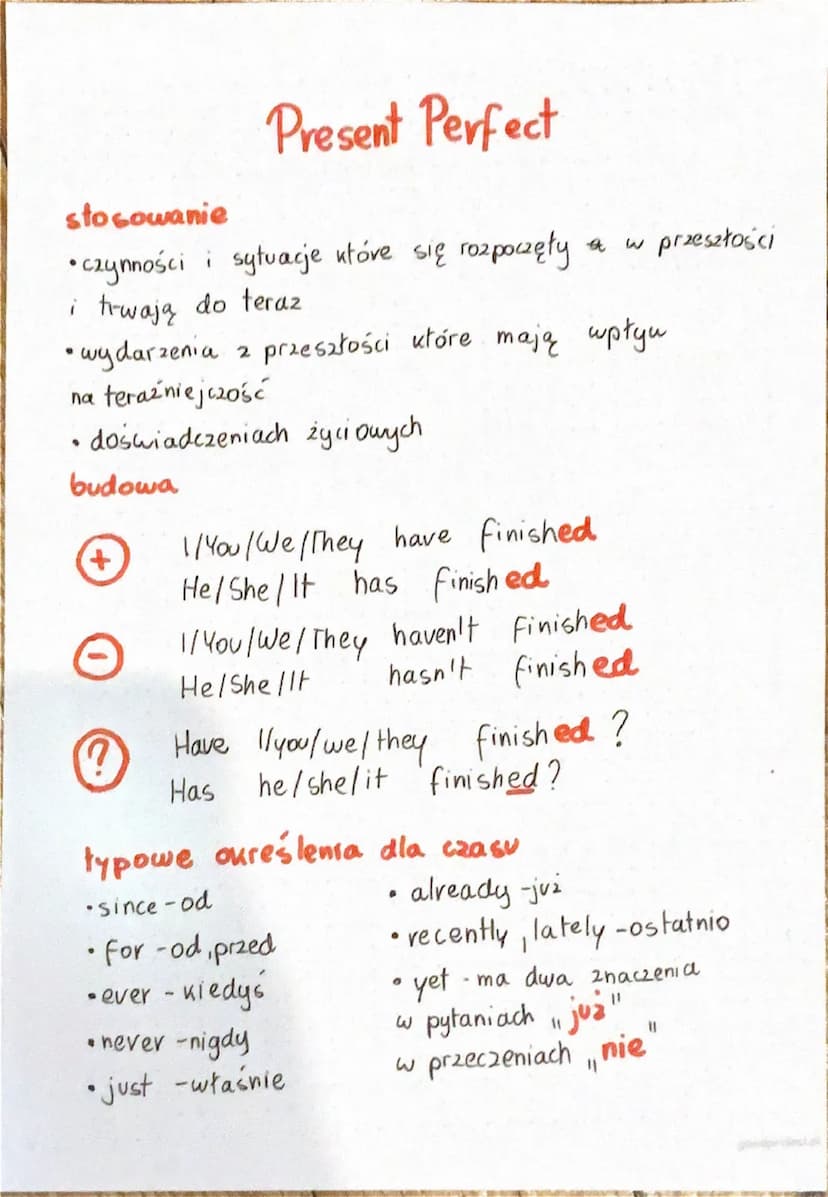 Present Perfect
stosowanie
• czynności i sytuacje które się rozpoczęły w przeszłości
i trwają do teraz
• wydarzenia z przeszłości które mają wpływ
na teraźniejczość
• doświadczeniach życiowych
budowa
+ I/You/We/They have finished
He/She/It has finished
- I/You/We/They haven't finished
He/She/It hasn't finished
? Have I/you/we/they finished?
Has he/she/it finished?
typowe określenia dla czasu
• since - od
• for - od, przed
• ever - kiedyś
• never - nigdy
• just - właśnie
• already - już
• recently, lately - ostatnio
• yet - ma dwa znaczenia
w pytaniach „już"
w przeczeniach „nie"